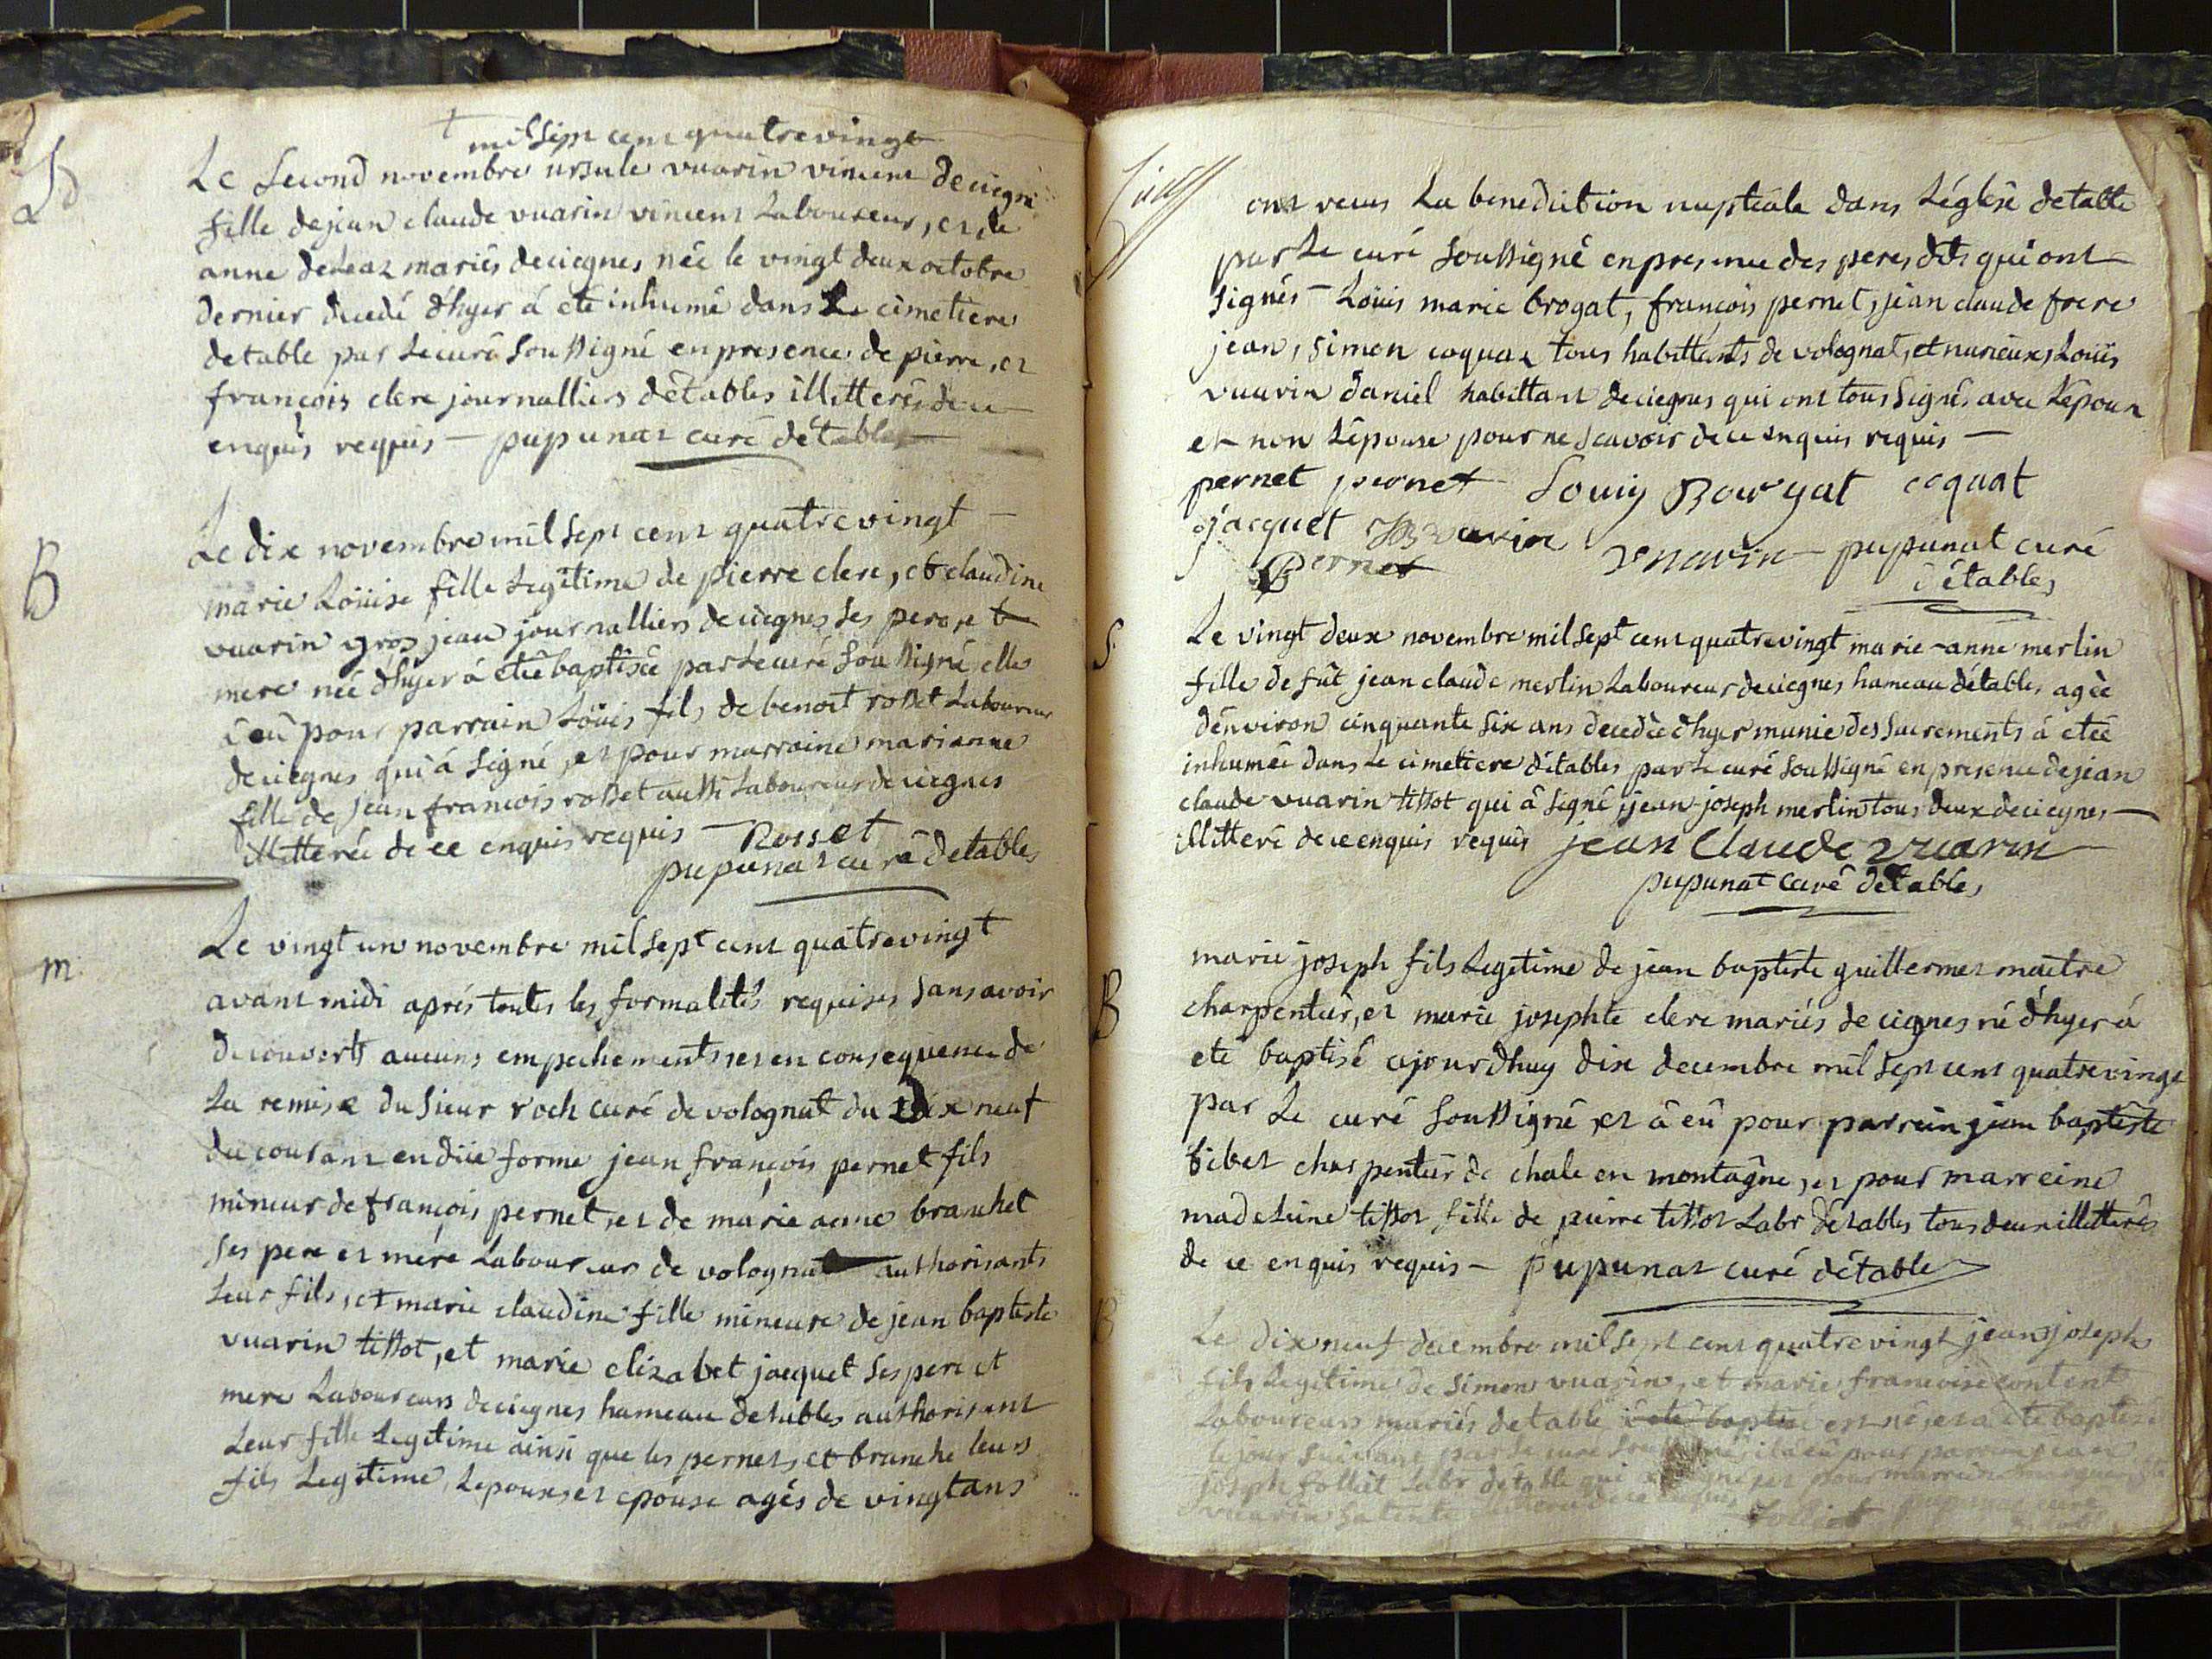 mil Sept cent quatrevingt
Le Second novembre ursule vuarin vincent deciegne
fille de jean claude vuarin vincent Laboureur, et de
anne mariés deciegnes née le vingt deux octobre
dernier decedé d'hyer á été inhumé dans Le cimetiere
detable par Lecuré Soussigné en presence de pierre, et
françois clerc journalliers détables illitterés de ce
enquis requis — pupunat curé détables
B
Le dix novembre mil Sept cent quatrevingt —
marie Loüise fille Legitime de pierre clerc, et claudine
vuarin gros jean journalliers deciegnes Ses pere et
mere née d'hyer á étée baptisée par Lecuré Soussigné elle
á eû pour parrain Loüis fils de benoit rosset Laboureur
deciegnes qui á Signé, et pour marraine marianne
fille de jean francois rosset aussi Laboureur deciegnes
illitterée de ce enquis requis — Rosset
pupunat curé detables
m
Le vingt un novembre mil Sept cent quatrevingt
avant midi aprés toutes les formalités requises Sans avoir
decouverts aucuns empechements, et en consequence de
La remise du Sieur roch curé de volognat du dix neuf
du courant en düe forme jean françois pernet fils
mineur de françois pernet, et de marie anne branchet
Ses pere et mére Laboureurs de volognat authorisants
Leur fils, et marie claudine fille mineure de jean baptiste
vuarin tissot, et marie elizabet jacquet Ses pere et
mere Laboureurs deciegnes hameau detables authorisent
Leur fille Legitime ainsi que les pernet, et branche leurs
fils Legitime, Lepoux, et epouse agés de vingt ans
ont recus La benediction nuptiale dans Léglise detable
par Le curé Soussigné en presence des peres dits qui ont
Signés — Loüis marie brogat, françois pernet, jean claude frere
jean, Simon coquat tous habittants de volognat, et nurieux, Loüis
vuarin daniel habittant deciegnes qui ont tous Signés avec L'epoux
et non L'épouse pour ne Scavoir de ce enquis requis —
pernet pernet Louis Bourgat coquat
jacquet vuarin vuarin — pupunat curé
Pernet détables
S.
Le vingt deux novembre mil Sept cent quatrevingt marie-anne merlin
fille de fût jean claude merlin Laboureur deciegnes hameau détables agée
d'environ cinquante Six ans decedée d'hyer munie des Sacrements á étée
inhumée dans Le cimettiere détables par Le curé Soussigné en presence de jean
claude vuarin tissot qui á Signé, jean-joseph merlin tous deux deciegnes —
illitteré de ce enquis requis jean Claude vuarin
pupunat curé détables
B
marie joseph fils Legitime de jean baptiste guillermet maitre
charpentier, et marie josephte clerc mariés de ciegnes né d'hyer á
eté baptisé ajourdhuy dix decembre mil Sept cent quatrevingt
par Le curé Soussigné, et á eû pour parrain jean baptiste
bibet charpentier de chale en montagne, et pour marreine
madeleine tissot fille de pierre tissot Labr détables tous deux illitterés
de ce enquis requis — pupunat curé détables
B
Le dix neuf decembre mil Sept cent quatre vingt jean joseph
fils Legitime de Simon vuarin, et marie francoise content
Laboureurs mariés detable est né, et a été baptisé
le jour Suivant par Le curé Soussigné il á eu pour parrain jean
joseph folliet Labr détable qui á Signé, et pour marreine marguerite
vuarin
folliet pupunat curé